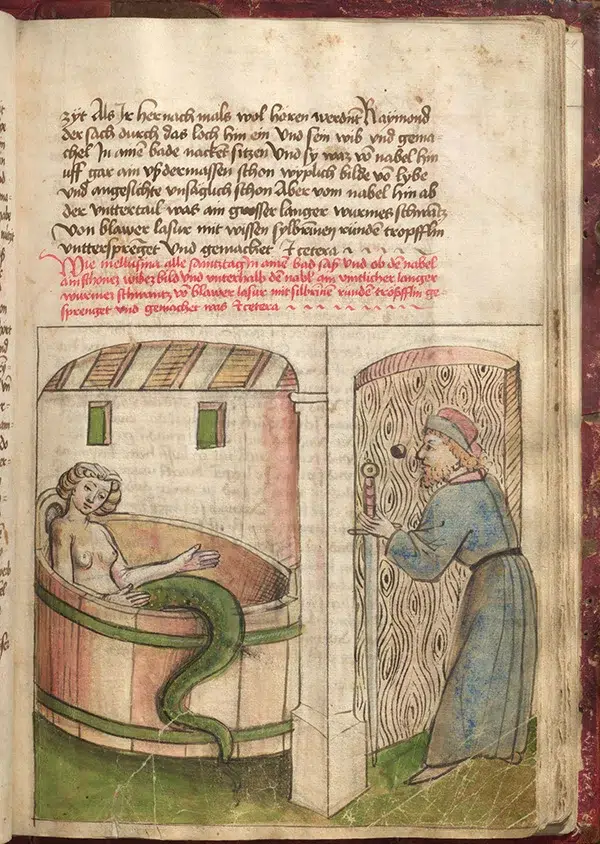 zÿt Als Ir her nach mals wol hören werdent Raymond
der sach durch das loch hin ein Und sein wib und gema-
chel In ainem bade nacket sitzen Und sy waz võ nabel hin
uff gar ain usdermassen schön wyplich bilde võ lybe
und angesichte unsäglich schön Aber vom nabel hin ab
der untertail was ain grosser langer wurmes schwantz
von blawer lasur mit wissen sylbrinen runde tropfflin
untterspreget Und gemachet Etcetera
Wie mellusina alle samtztag in aine bad saß und ob dem nabel
ain schönes wibez bild und unterhalb de nabl ain langer
wurmes schwantz võ blawer lasur mit silbrine runden tröpfflin ge-
sprenget und gemachet was Etcetera